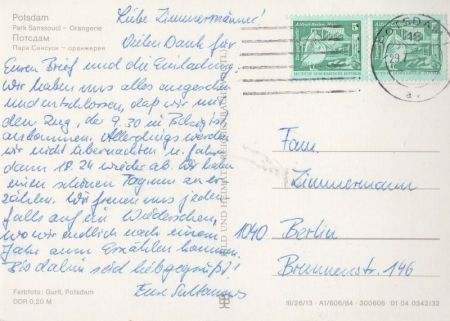 Potsdam
Park Sanssouci – Orangerie
Потсдам
Парк Сансуси – оранжерея
Liebe Zimmermänner!
Vielen Dank für
Euren Brief und die Einladung.
Wir haben uns alles angesehen
und entschlossen, daß wir mit
dem Zug, der 9.30 in
ankommen. Allerdings werden
wir nicht übernachten u. fahren
dann 18.24 wieder ab. Wir haben
einen schönen Tag um zu er-
zählen. Wir freuen uns jeden-
falls auf ein Wiedersehen,
wo wir endlich nach einem
Jahr zum Erzählen kommen.
Bis dahin seid liebgegrüßt!
Eure
Fam.
Zimmermann
1040 Berlin
Brunnenstr. 146
POTSDAM
5
Farbfoto: Gurlt, Potsdam
DDR 0,20 M
III/26/13 · A1/606/84 · 300606 01 04 0342/32